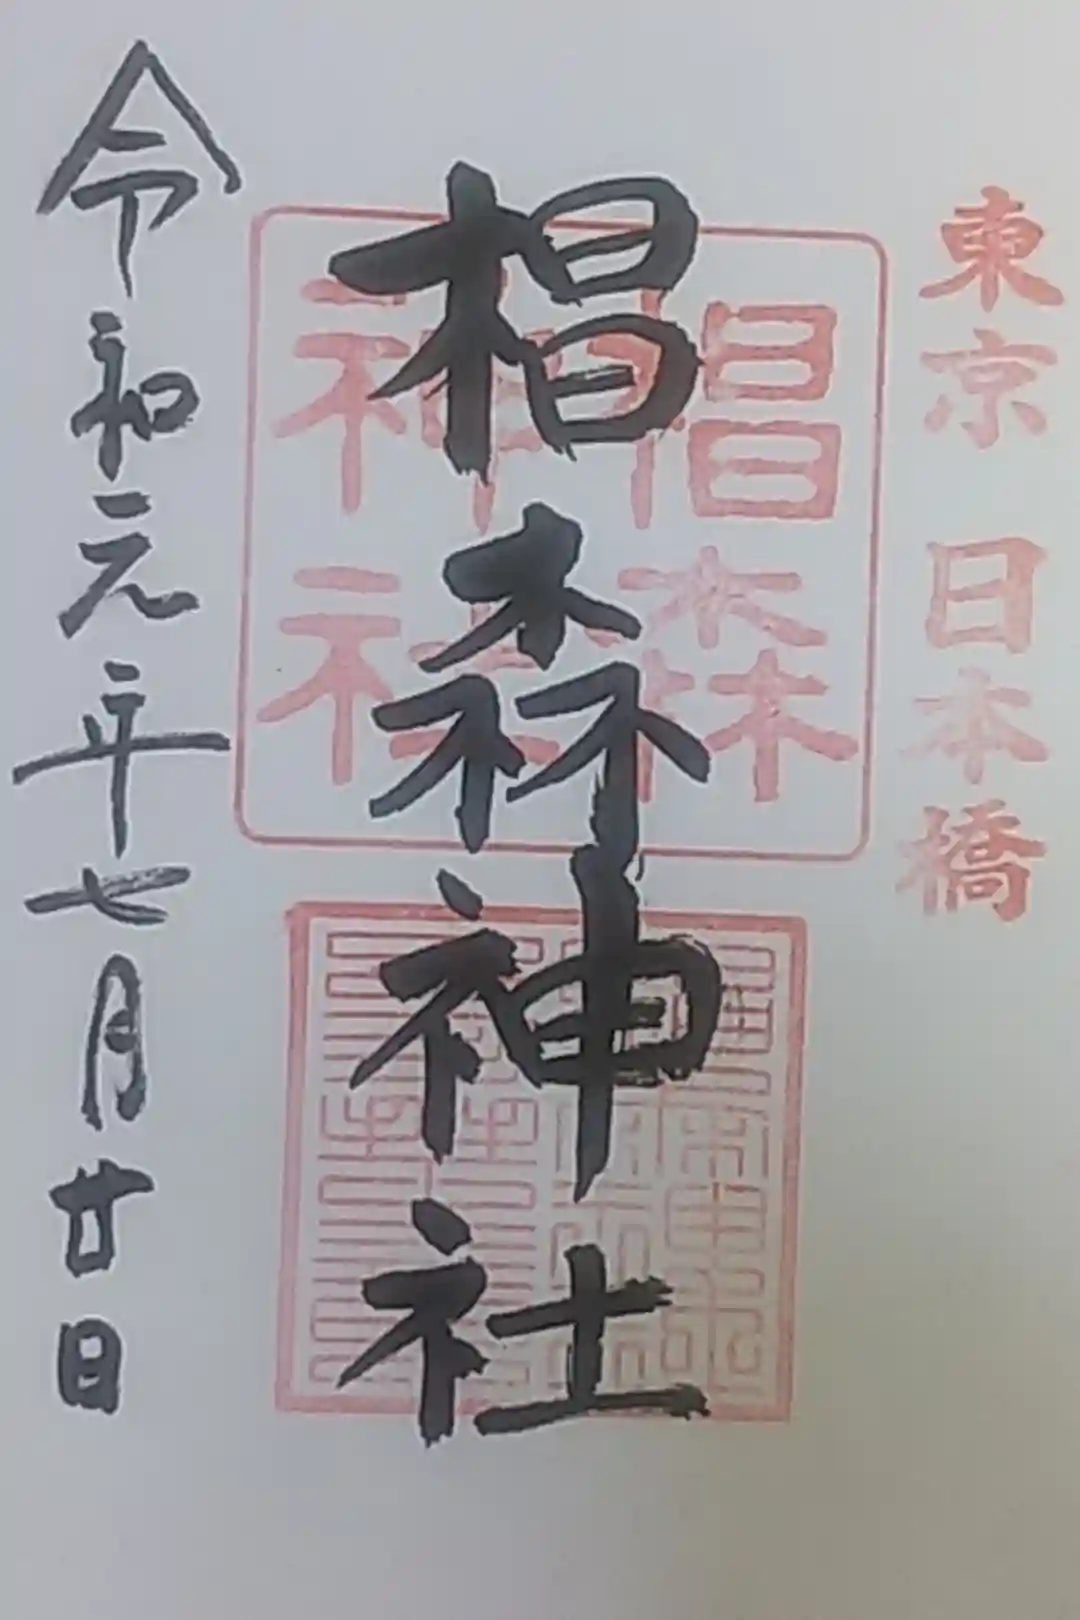 東京 日本橋
椙森神社
椙森
神社
令和元年七月廿日